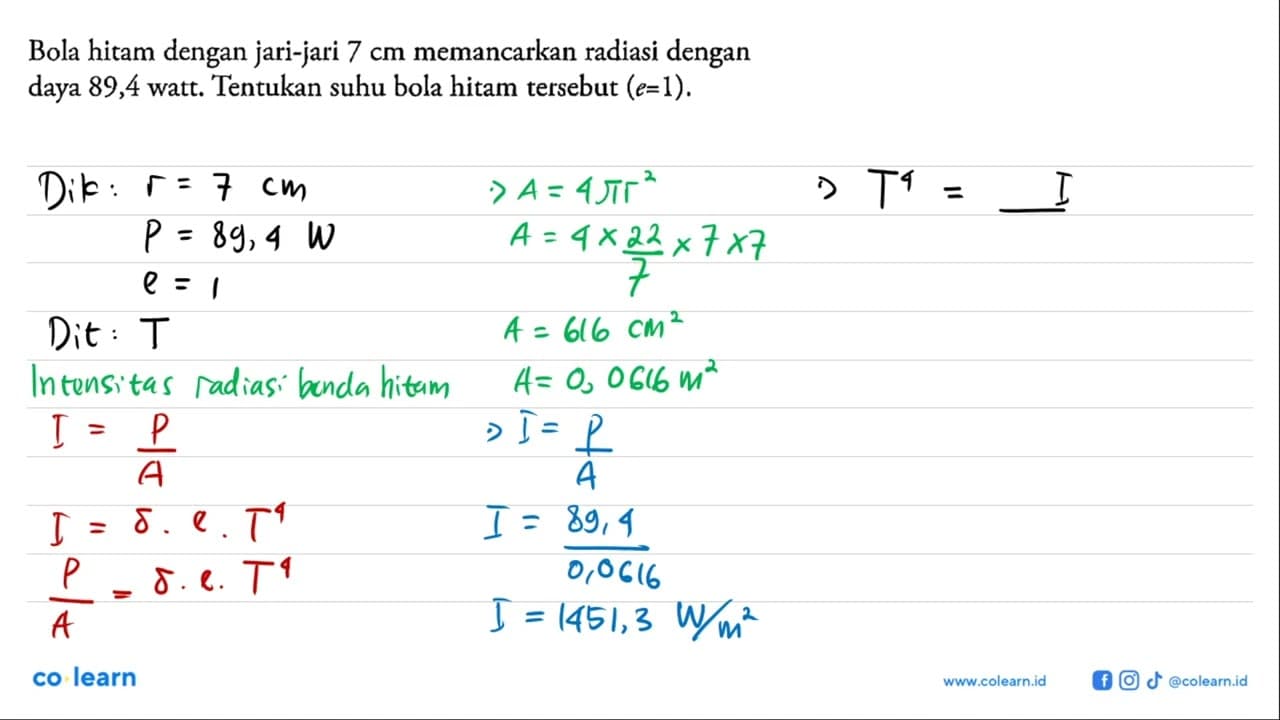 Bola hitam dengan jari-jari 7 cm memancarkan radiasi dengan
daya 89,4 watt. Tentukan suhu bola hitam tersebut (e=1).
Dik: r = 7 cm
P = 89,4 W
e = 1
Dit: T
Intensitas radiasi benda hitam
I = P/A
I = δ. e. T⁴
P/A = δ. e. T⁴
> A = 4πr²
A = 4 × 22/7 × 7 × 7
A = 616 cm²
A = 0,0616 m²
> I = P/A
I = 89,4/0,0616
I = 1451,3 W/m²
> T⁴ = I
co learn
www.colearn.id
@colearn.id